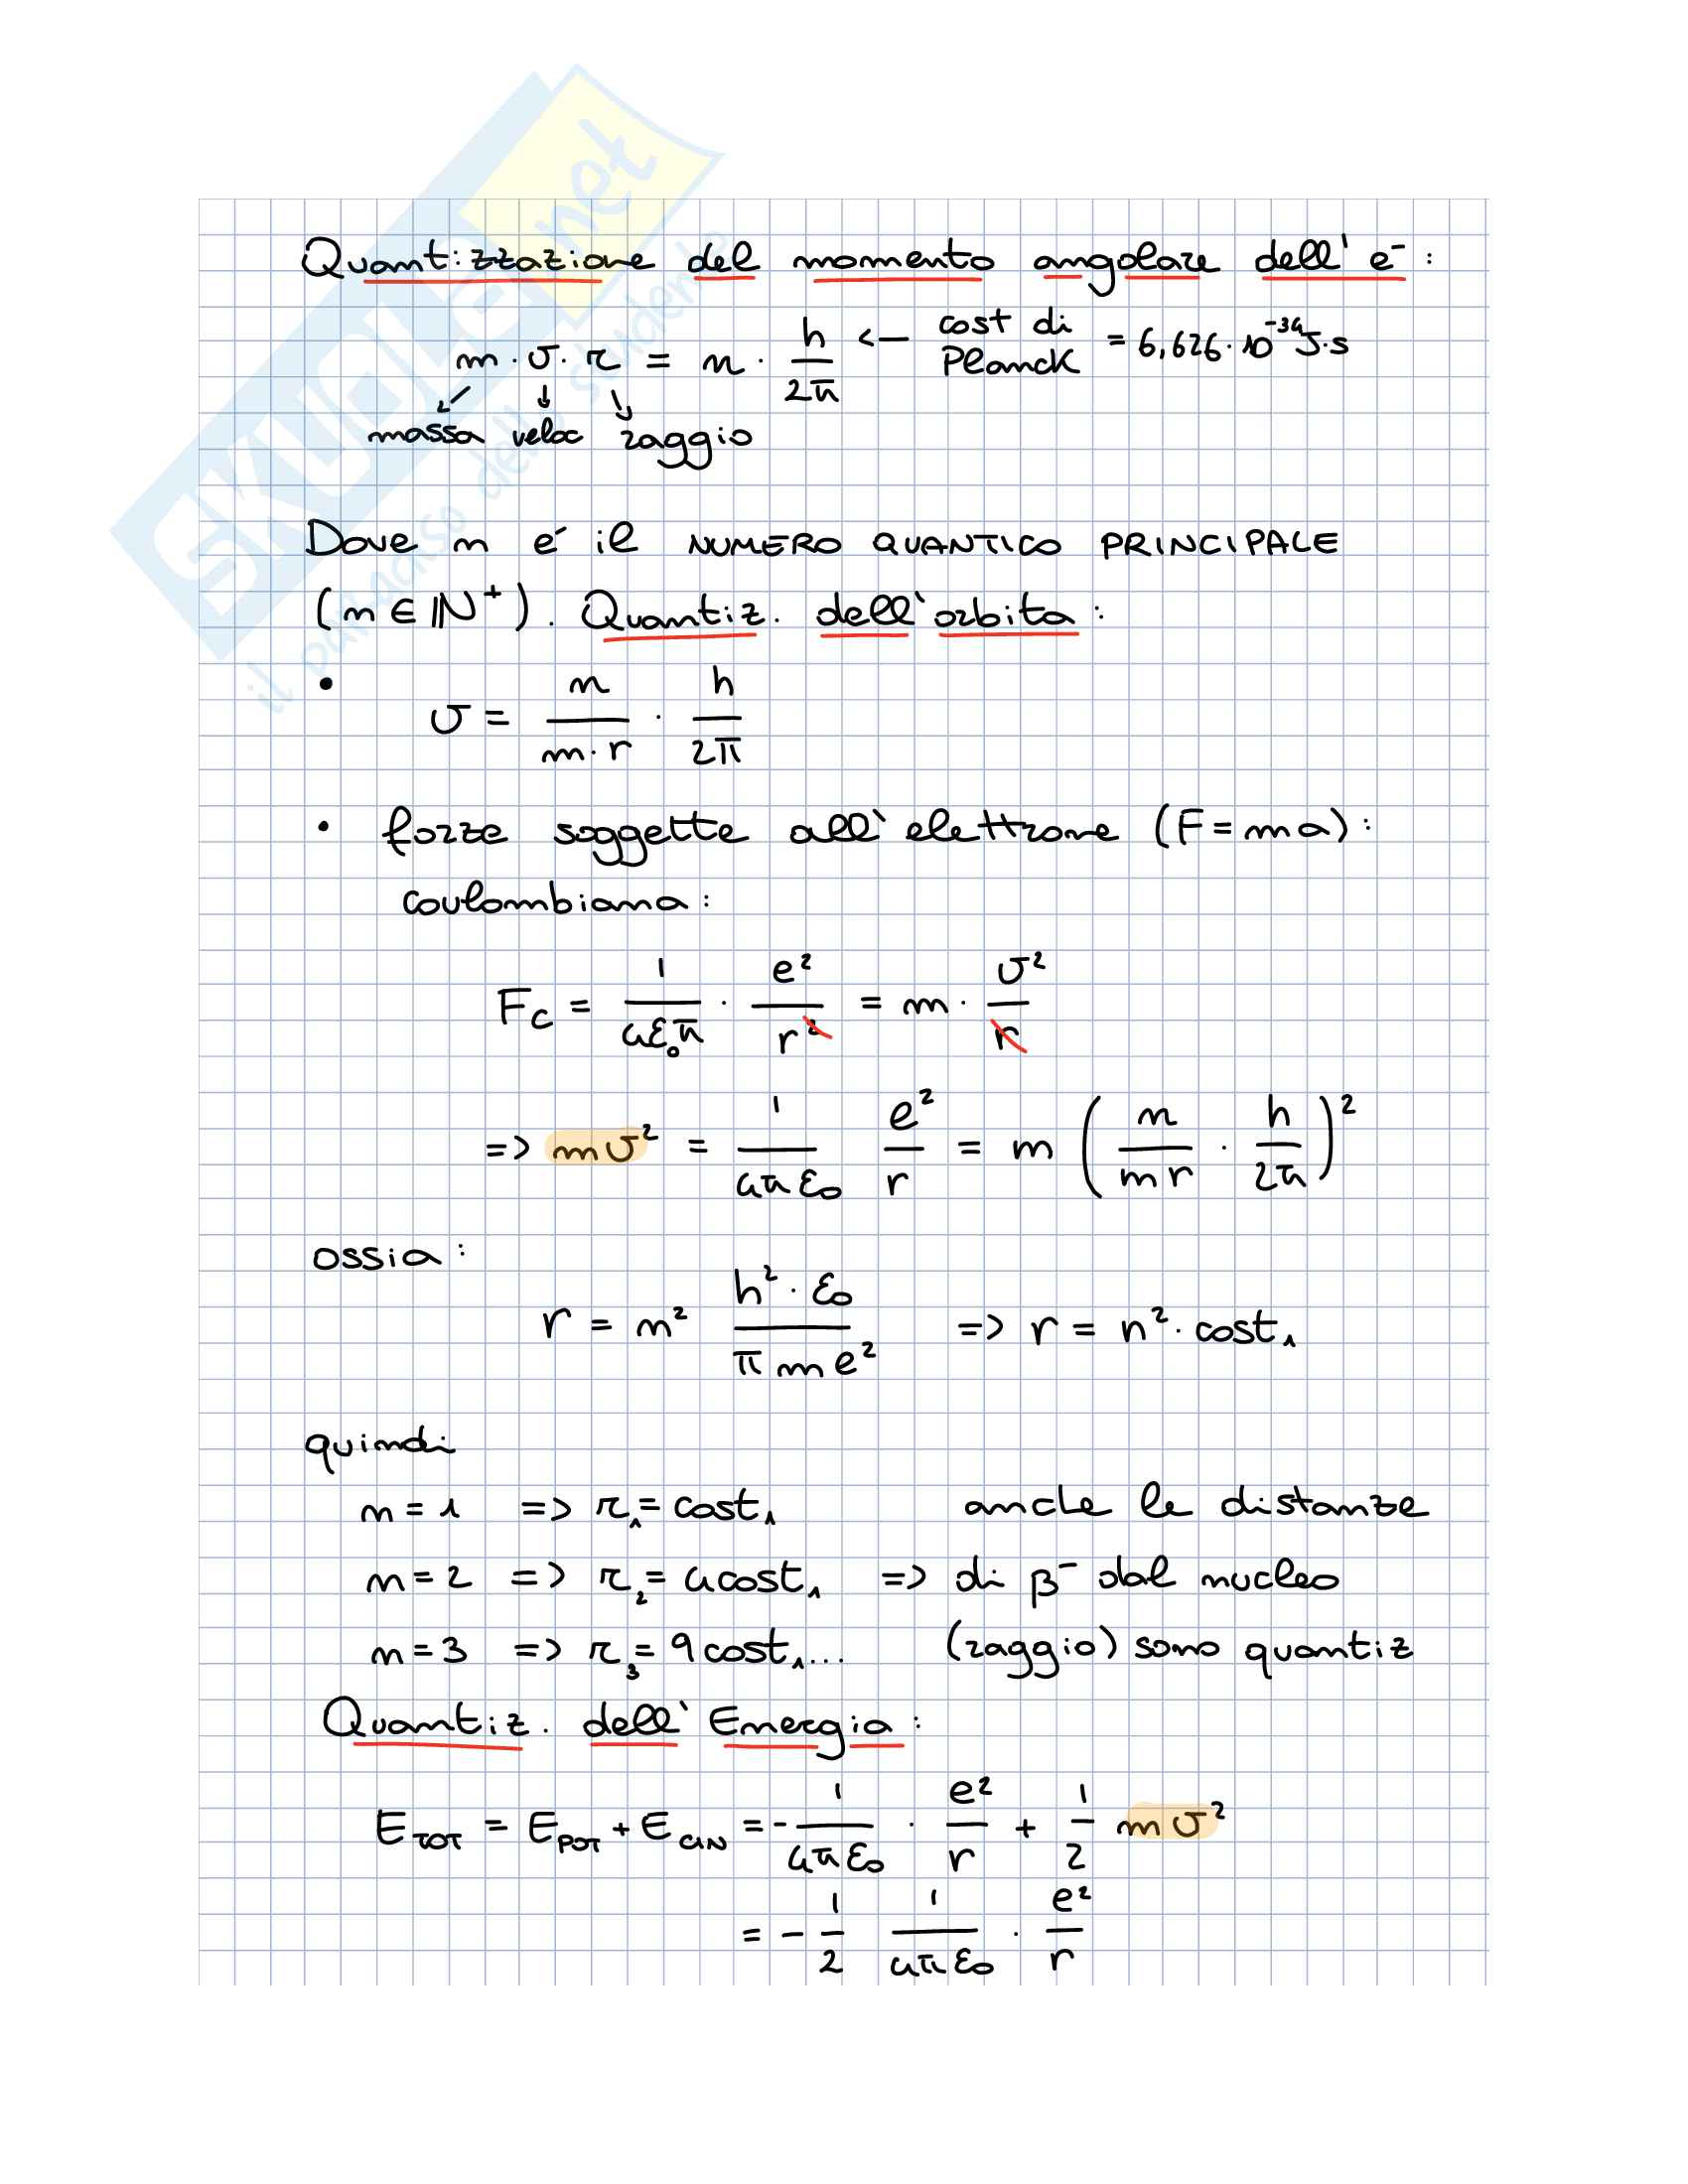 SKUOLA.net
il paradiso dello studente
Quantizzazione del momento angolare dell'e⁻:
m · v · r = n · h/2π ← cost di Planck = 6,626 · 10⁻³⁴ J·s
massa veloc raggio
Dove n é il NUMERO QUANTICO PRINCIPALE
(n ∈ ℕ⁺). Quantiz. dell'orbita:
• v = n/(m·r) · h/2π
• forze soggette all'elettrone (F = ma):
coulombiana:
Fc = 1/(4ε₀π) · e²/r² = m · v²/r
=> mv² = 1/(4πε₀) e²/r = m (n/(mr) · h/2π)²
ossia:
r = n² (h² · ε₀)/(π m e²) => r = n² · cost₁
quindi
n = 1 => r₁ = cost₁ anche le distanze
n = 2 => r₂ = 4cost₁ => di β⁻ dal nucleo
n = 3 => r₃ = 9cost₁... (raggio) sono quantiz
Quantiz. dell'Energia:
E TOT = E POT + E CIN = - 1/(4πε₀) · e²/r + 1/2 mv²
= - 1/2 1/(4πε₀) · e²/r